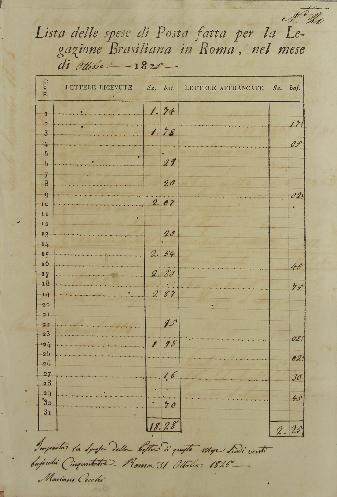 Lista delle spese di Posta fatta per la Le-
gazione Brasiliana in Roma, nel mese
di Ottobre — 1825 —
LETTERE RICEVUTE Sc. baj. LETTERE AFFRANCATE Sc. baj.
1 1. 74
2 17
3 1. 78
4 05
5
6 29
7
8 20
9 02
10 2. 07
11
12
13 20
14
15 2. 54
16 45
17
18 75
19
20
21
22
23 02
24
25 02
26
27 16 30
28
29 45
30 70
31
18. 28 2. 25
Importa la spesa delle lettere di questo mese Scudi venti
bajocchi Cinquantatre — Roma 31 Ottobre 1825 —
Mariano Cecchi